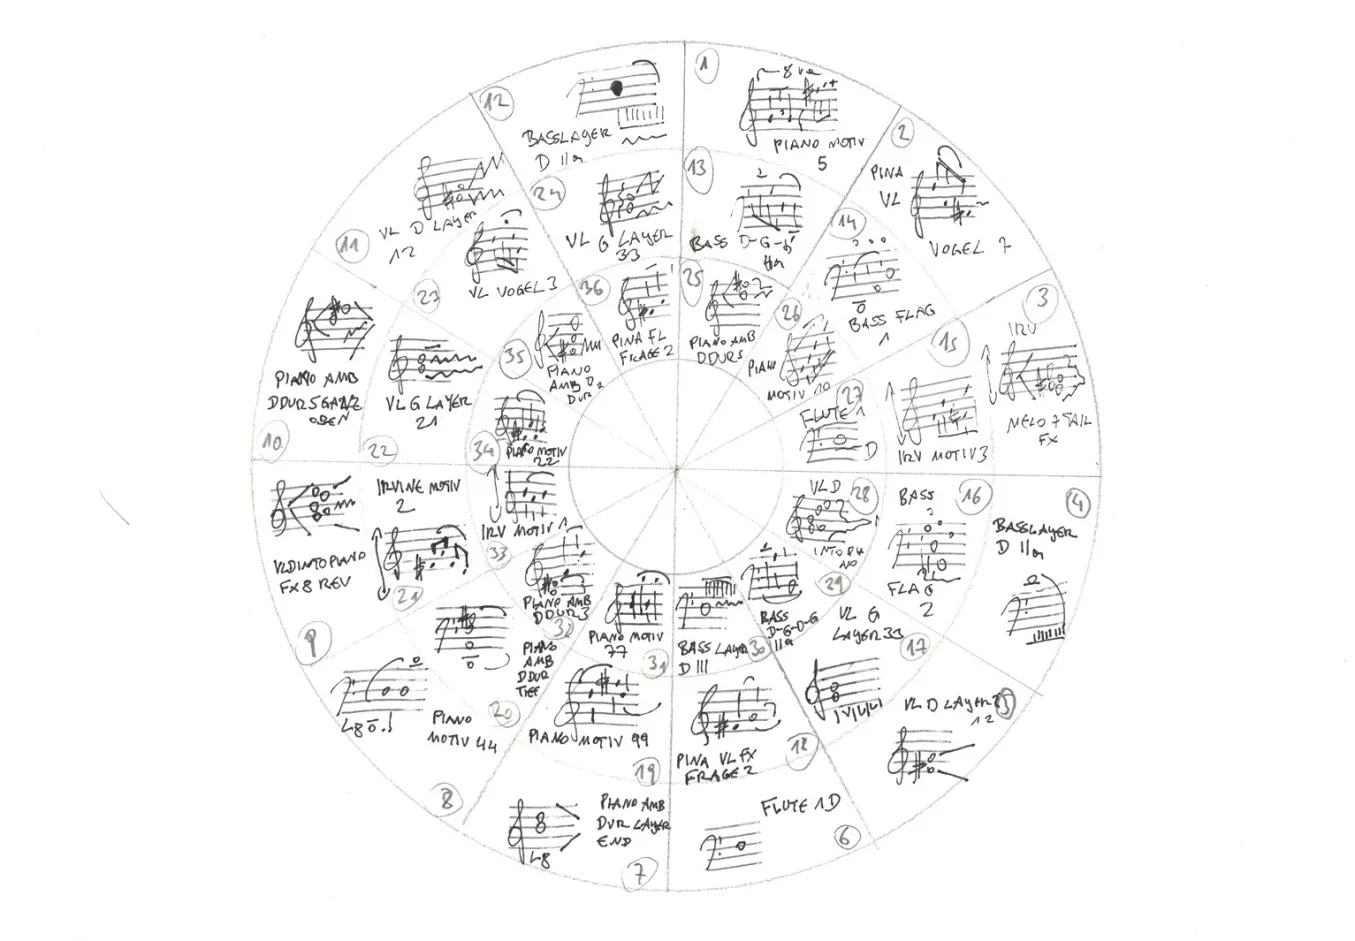 1
8va
PIANO MOTIV
5
2
PINA
VL
VOGEL 7
3
IRV
MELO 7 TAIL
FX
4
BASSLAYER
D IIa
VL D LAYER
12
6
FLUTE 1D
7
PIANO AMB
DUR LAYER
END
8
PIANO
MOTIV 44
9
VLD INTO PIANO
FX 8 REV
10
PIANO AMB
DDUR5 GANZ
OBEN
11
VL D LAYER
12
12
BASSLAYER
D IIa
13
BASS D-G-D
IIa
14
BASS FLAG
1
15
IRV MOTIV 3
16
BASS
FLAG
2
17
VL G
LAYER 33
18
PINA VL FX
FRAGE 2
19
PIANO MOTIV 99
20
PIANO
AMB
DDUR
TIEF
21
IRVINE MOTIV
2
22
VL G LAYER
21
23
VL VOGEL 3
24
VL G LAYER
33
25
PIANO AMB
DDUR5
26
PIANO
MOTIV 10
27
FLUTE 1
D
28
VL D
INTO PIA
NO
29
BASS
D-G-D-G
IIa
30
BASS LAYER
D III
31
PIANO MOTIV
77
32
PIANO AMB
DDUR3
33
IRV MOTIV 1
34
PIANO MOTIV
22
35
PIANO
AMB D2
DUR
36
PINA FL
FRAGE 2